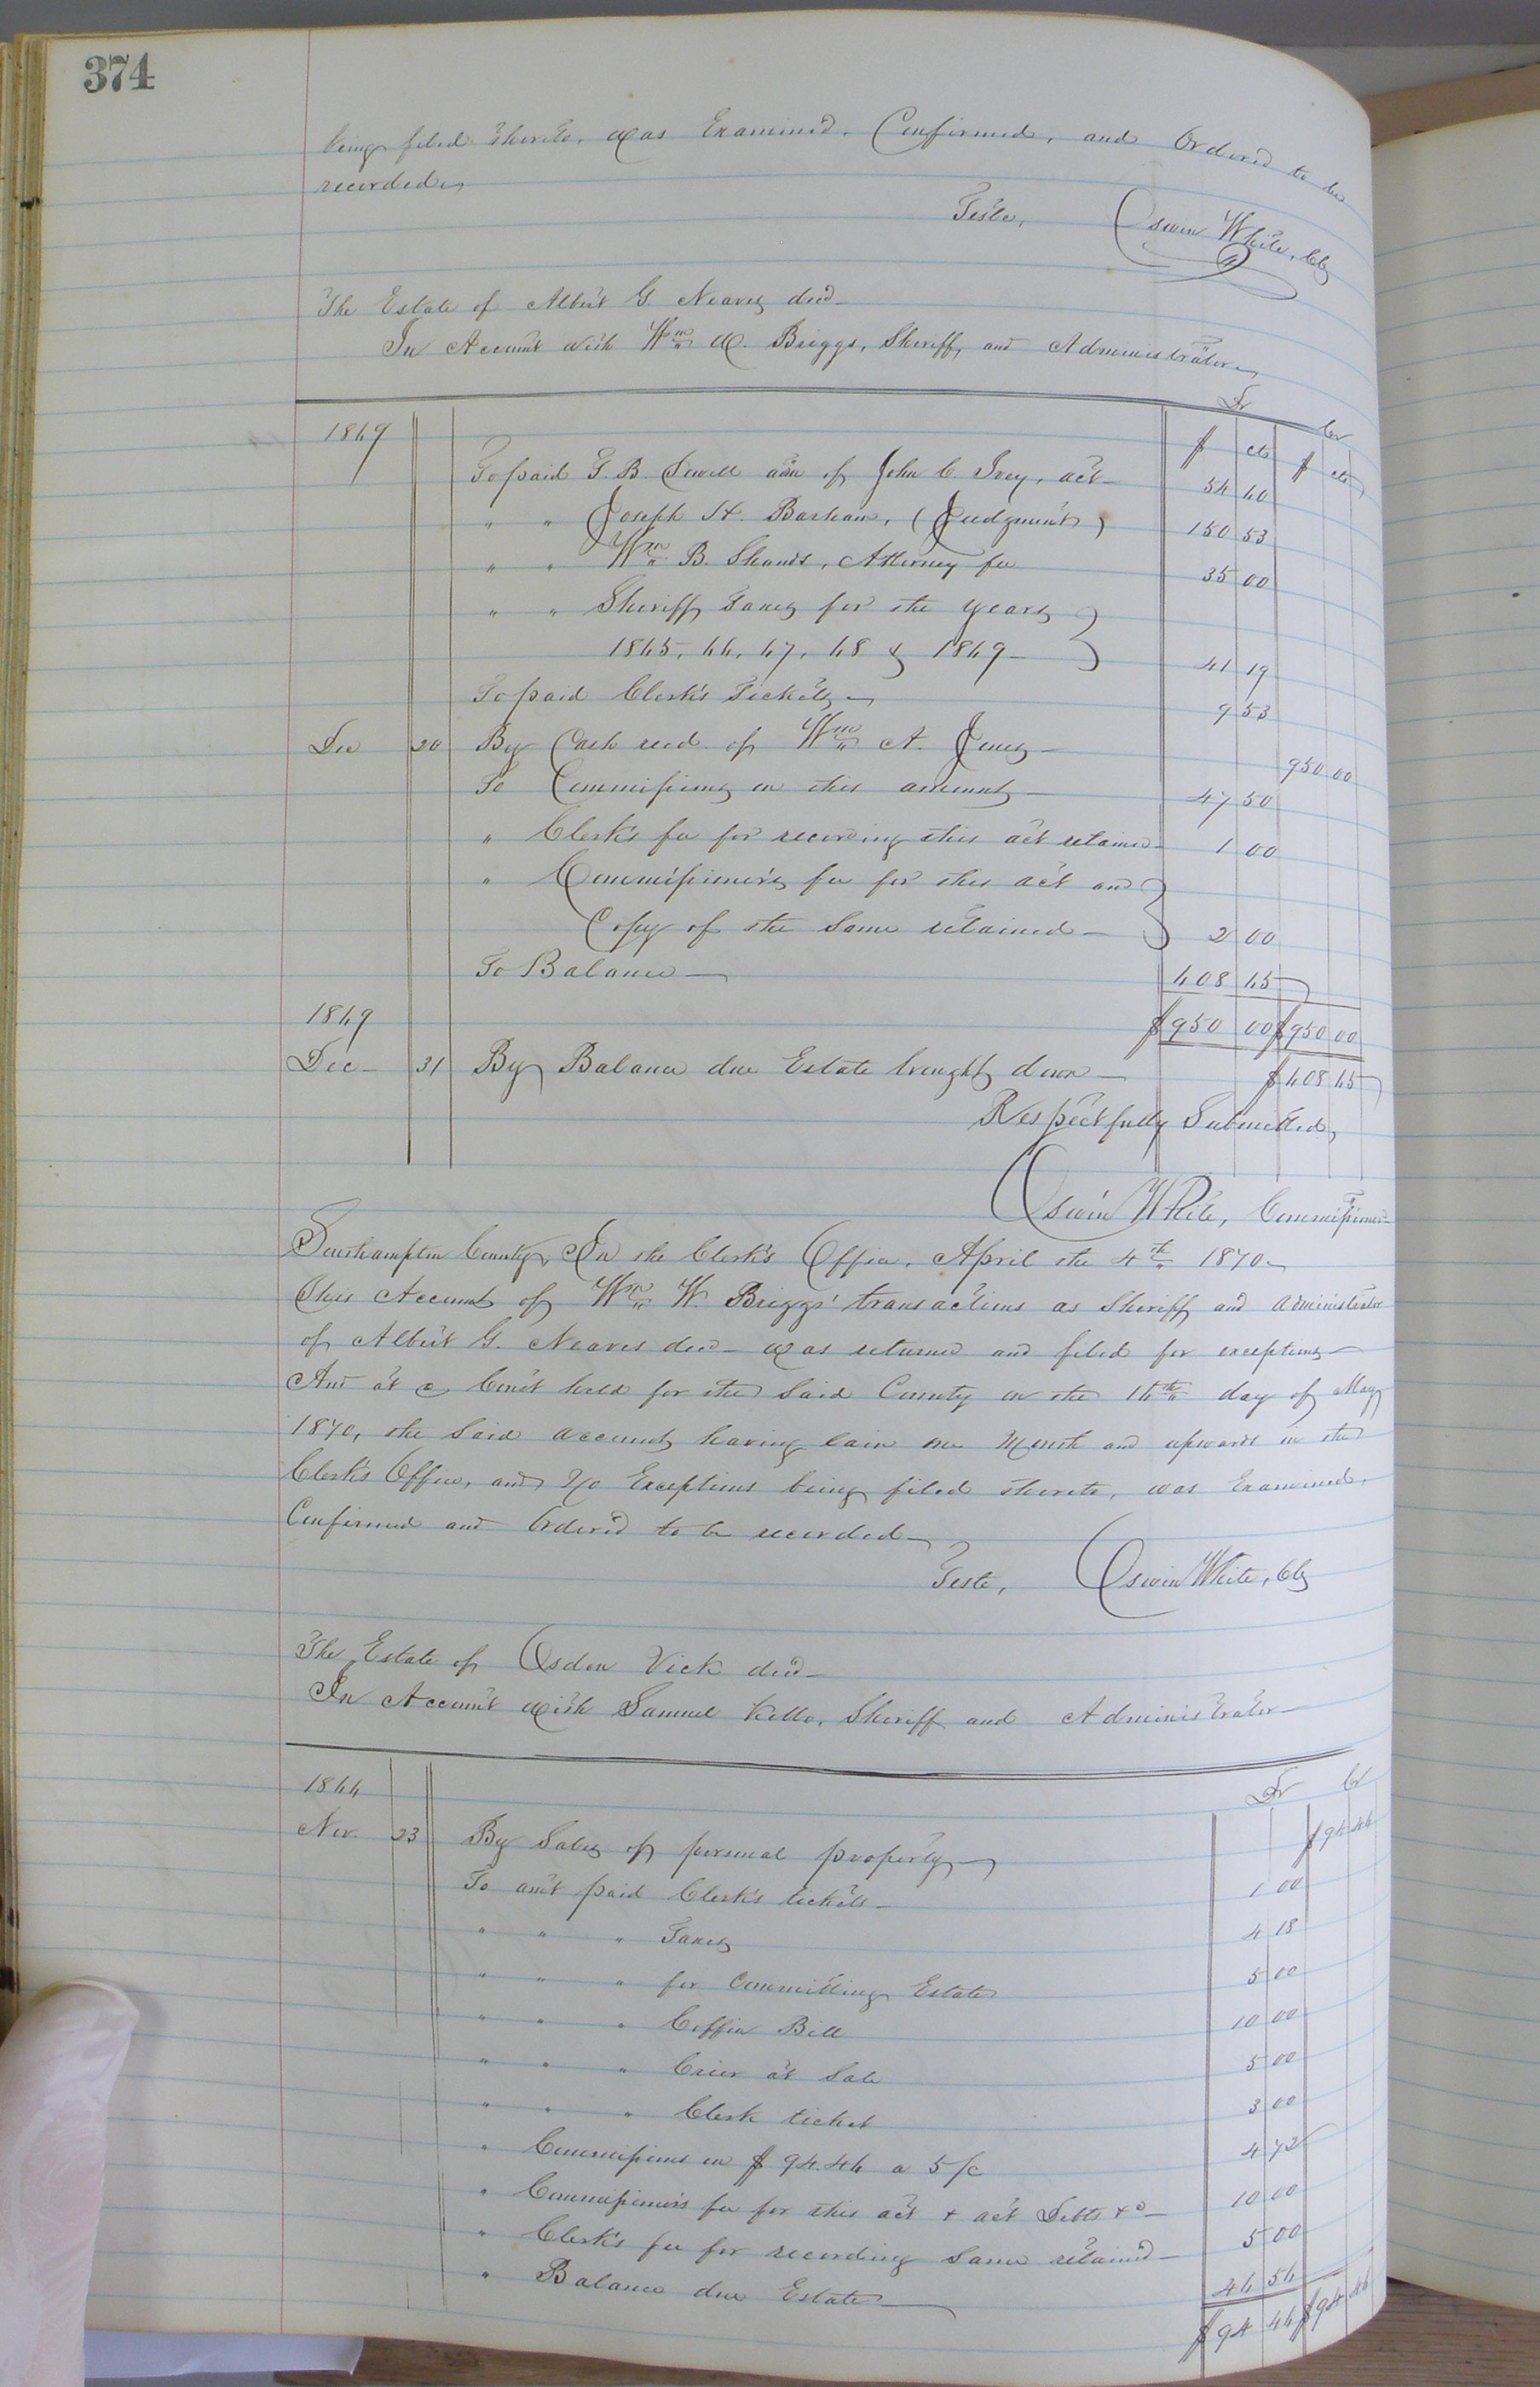 374
being filed thereto, was Examined, Confirmed, and Ordered to be
recorded
Teste, Oswin White, Clk
The Estate of Albert G. Neaves decd
In Account with Wm W. Briggs, Sheriff, and Administrator
Dr Cr
1869 $ cts $ cts
To paid T. B. Sewell adm of John C. Ivey, act 54 60
" " Joseph H. Barham, (Judgment) 150 53
" " Wm B. Shands, Attorney fee 35 00
" " Sheriff Taxes for the years
1865, 66, 67, 68 & 1869 41 19
To paid Clerk's Tickets 9 53
Dec 20 By Cash recd of Wm A. Jones 950 00
To Commissions on this amount 47 50
" Clerk's fee for recording this act retained 1 00
" Commissioner's fee for this act and
Copy of the same retained 2 00
To Balance 608 65
1869 $950 00 $950 00
Dec 31 By Balance due Estate brought down $608 65
Respectfully Submitted,
Oswin White, Commissioner
Southampton County, In the Clerk's Office, April the 4th 1870
This Account of Wm W. Briggs' transactions as Sheriff and administrator
of Albert G. Neaves decd was returned and filed for exceptions
And at a Court held for the said County on the 16th day of May
1870, the said account having lain one month and upwards in the
Clerk's Office, and No Exceptions being filed thereto, was Examined,
Confirmed and Ordered to be recorded
Teste, Oswin White, Clk
The Estate of Osden Vick decd
In Account with Samuel Kello, Sheriff and Administrator
1866 Dr Cr
Nov. 23 By Sales of personal property $94 46
To am't paid Clerk's tickets 1 00
" " " Taxes 4 18
" " " for Committing Estate 5 00
" " " Coffin Bill 10 00
" " " Crier at Sale 5 00
" " " Clerk ticket 3 00
" Commissions on $94.46 a 5/c 4 72
" Commissioner's fee for this act & act Debts &c 10 00
" Clerk's fee for recording same retained 5 00
" Balance due Estate 46 56
$94 46 $94 46